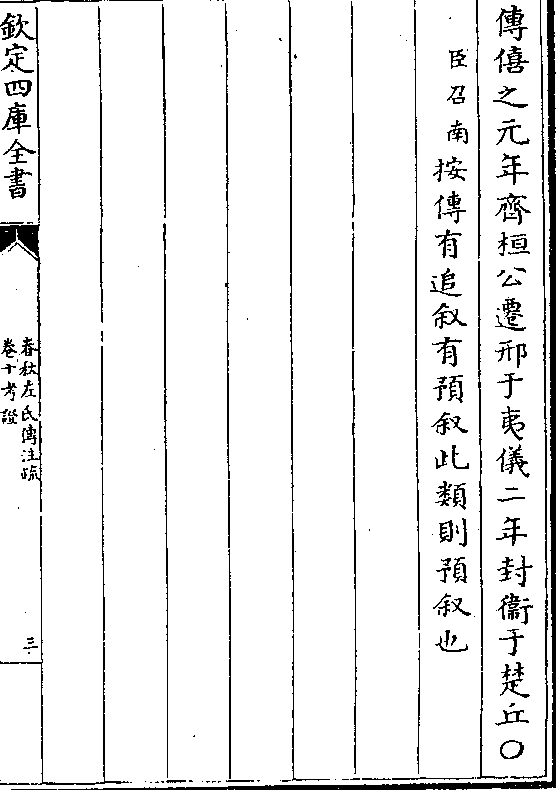 傳僖之元年齊桓公遷邢于夷儀二年封衞于楚丘〇
臣召南按傳有追叙有預叙此類則預叙也
欽定四庫全書
春秋左氏傳注疏
卷十考證
三